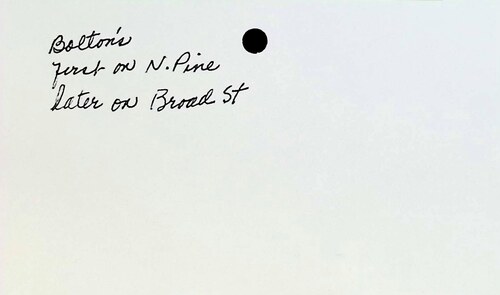 Bolton's
first on N. Pine
later on Broad St